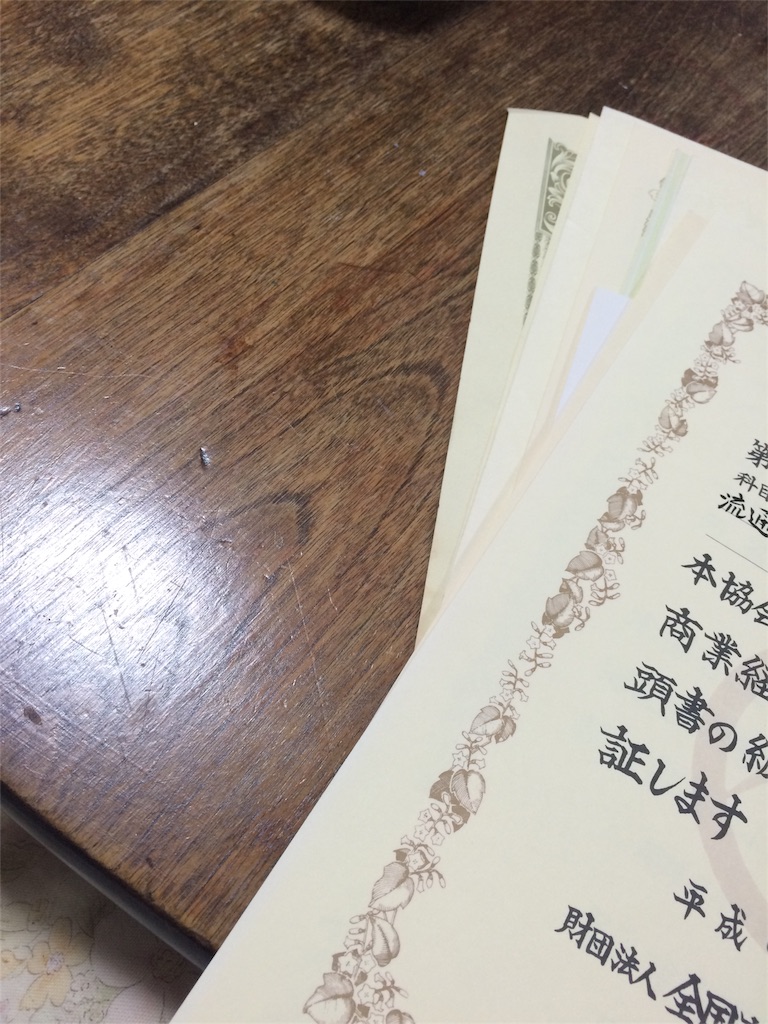 第
科目
流通
本協会
商業経
頭書の級
証します
平成
財団法人 全国